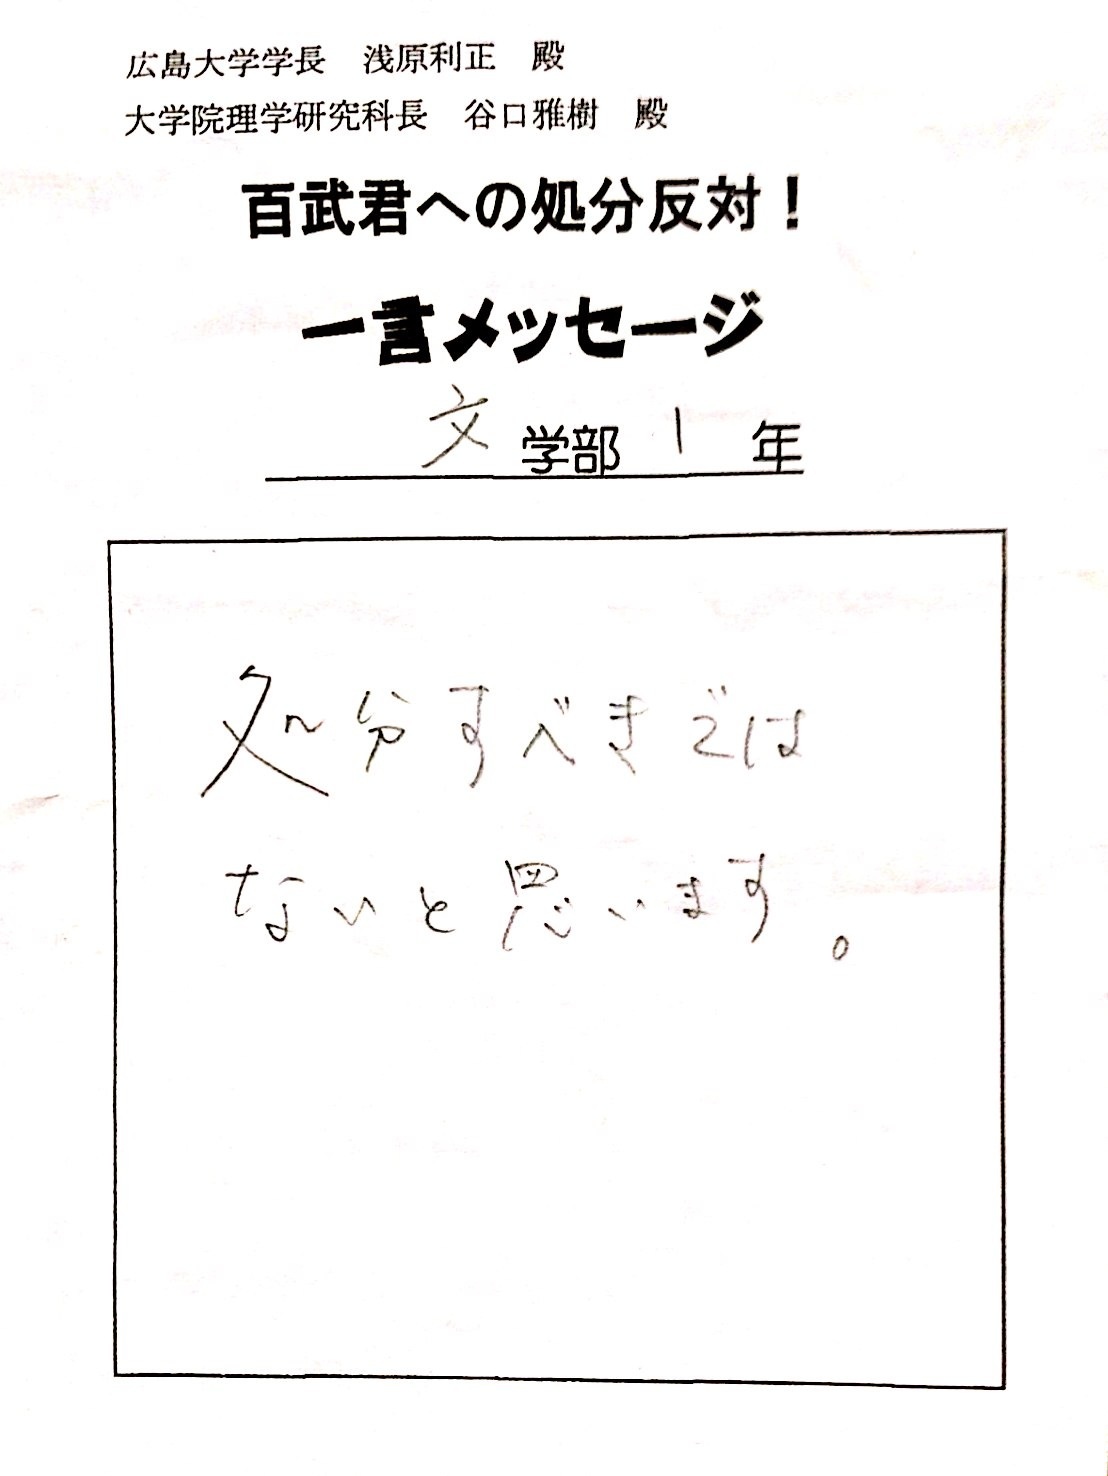 広島大学学長　浅原利正　殿
大学院理学研究科長　谷口雅樹　殿
百武君への処分反対！
一言メッセージ
文学部 1 年
処分すべきでは
ないと思います。